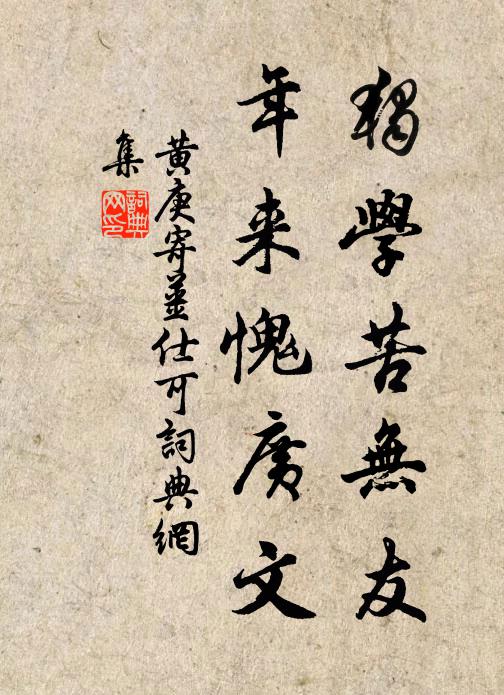 獨學苦無友
年来愧廣文
黄庚寄姜仕可詞典網
集
詞典
网印